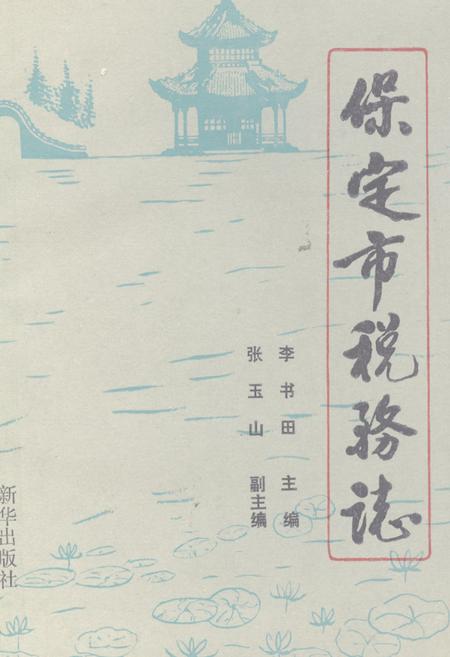 保定市税務誌
李书田 主编
张玉山 副主编
新华出版社